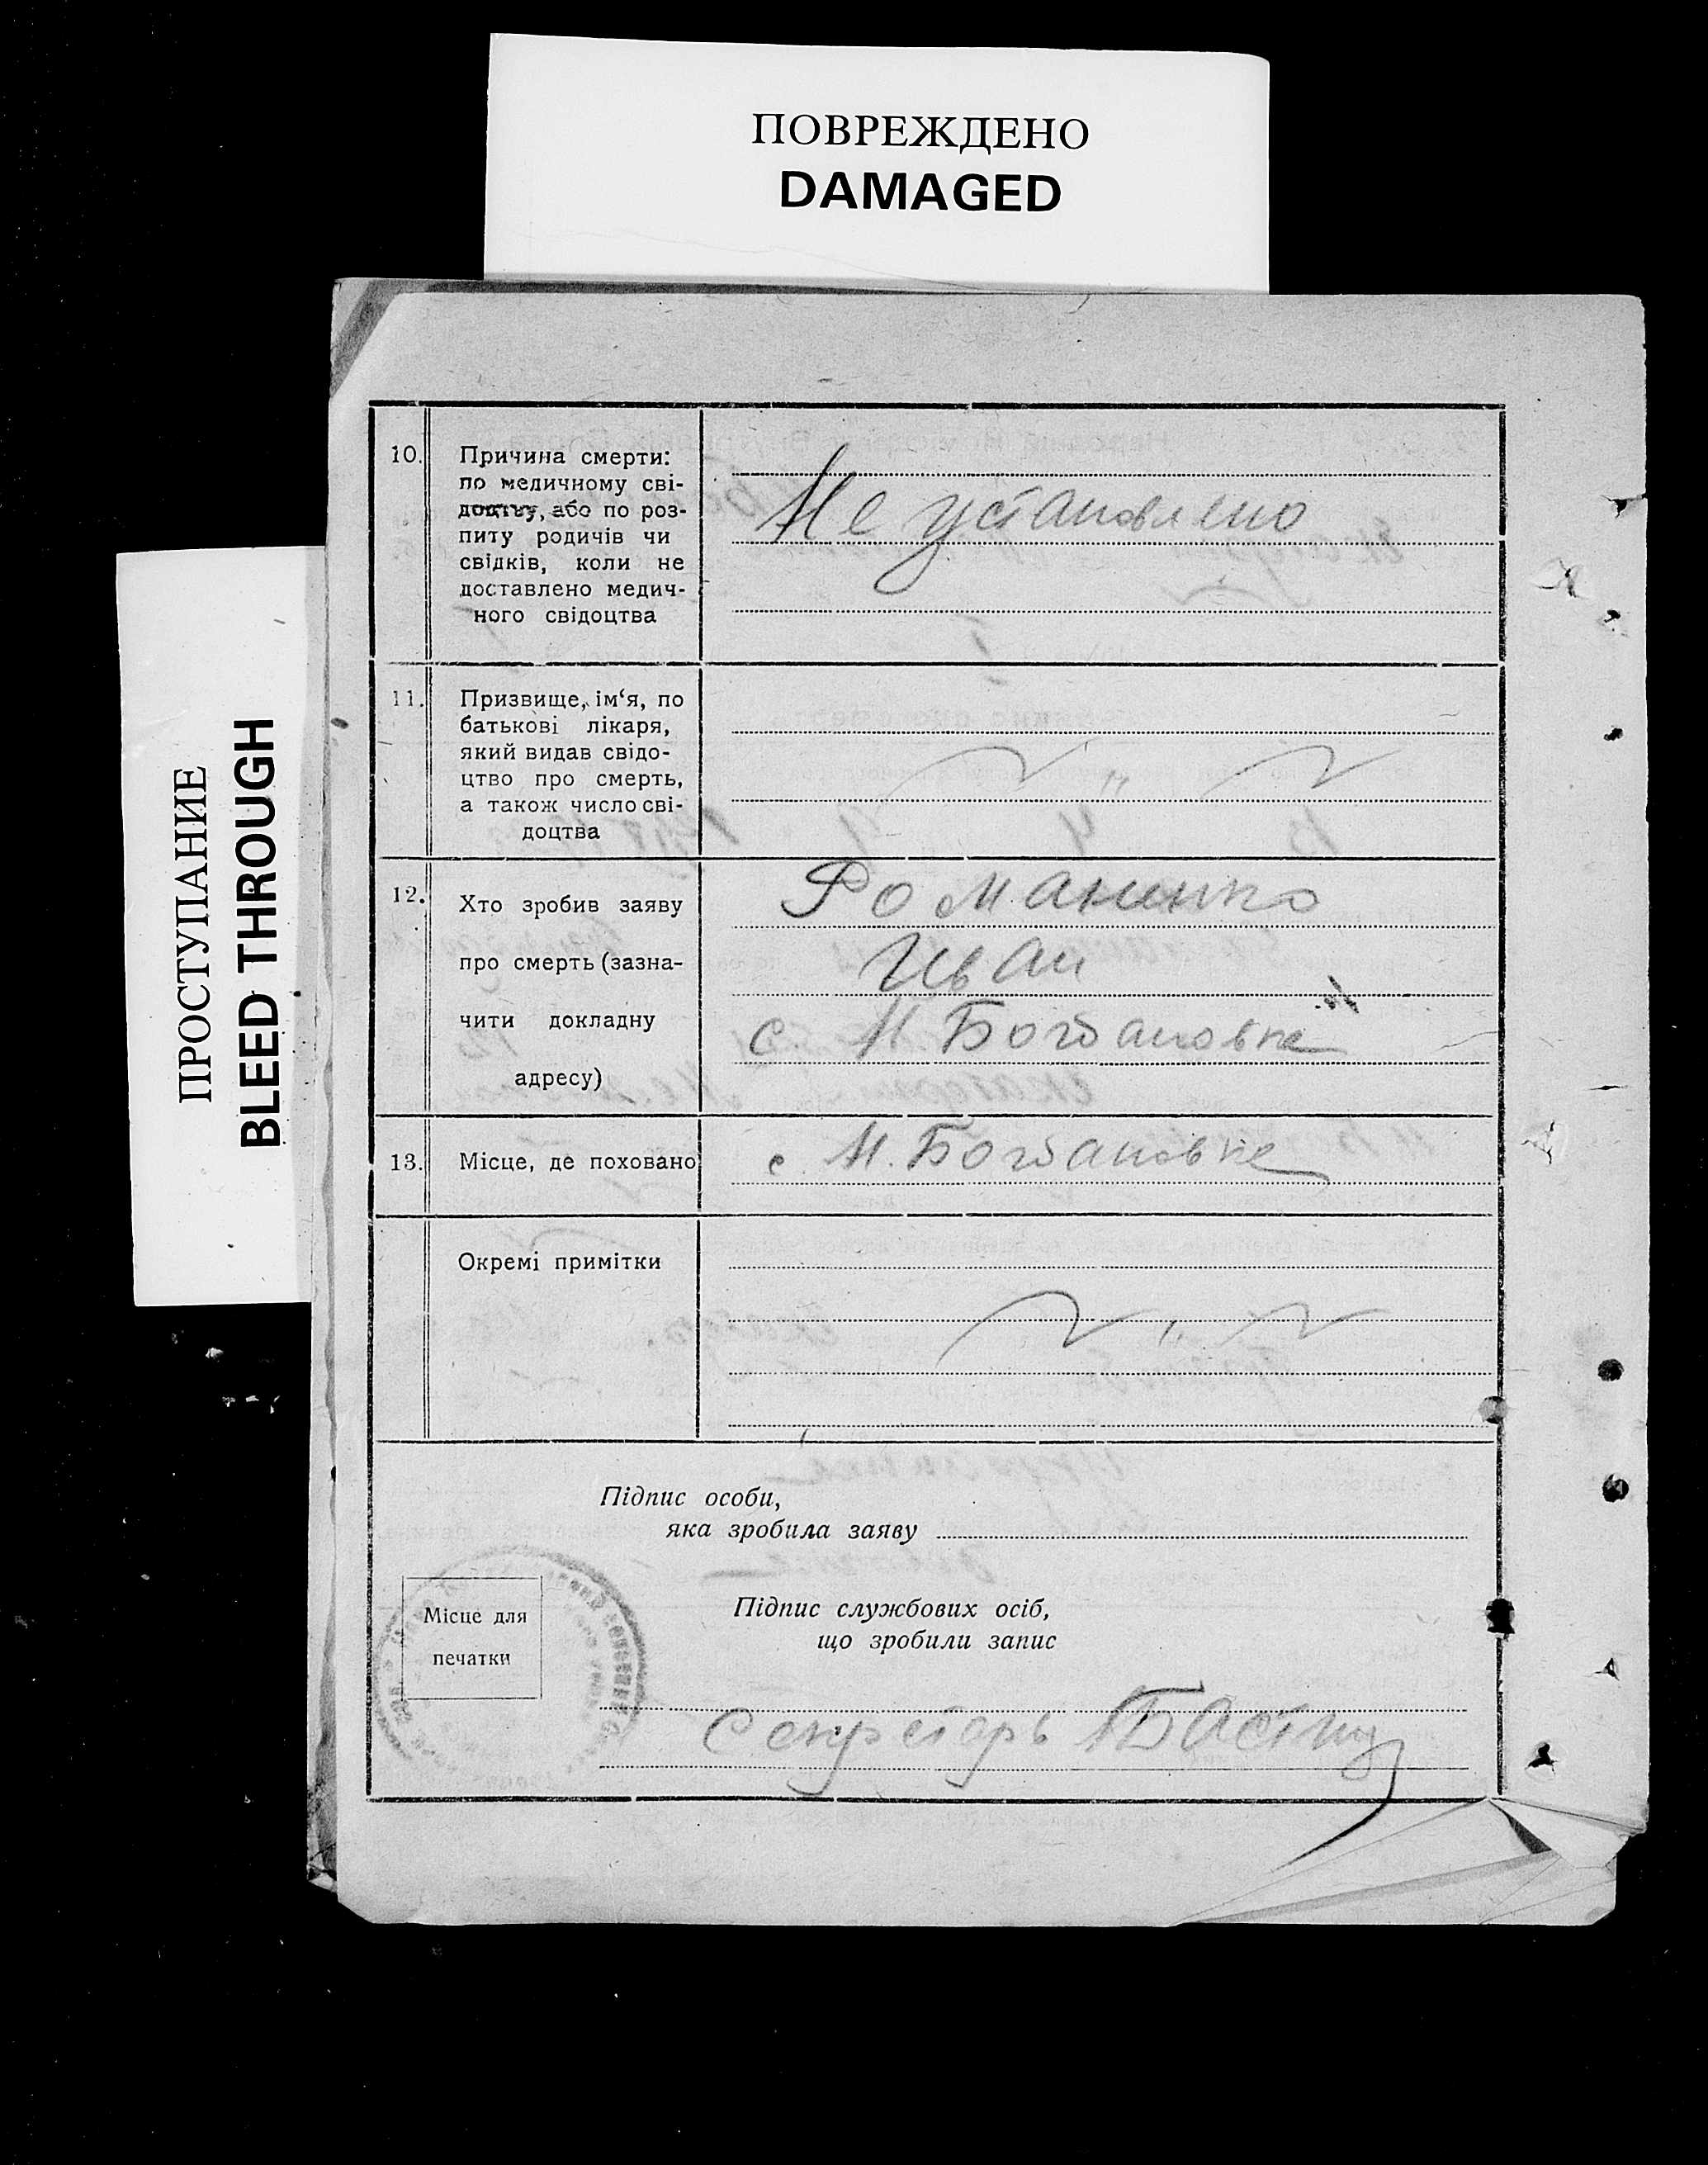 ПОВРЕЖДЕНО
DAMAGED
ПРОСТУПАНИЕ
BLEED THROUGH
10. Причина смерти:
по медичному сві-
доцтву, або по роз-
питу родичів чи
свідків, коли не
доставлено медич-
ного свідоцтва
Не установлено
11. Призвище, ім‘я, по
батькові лікаря,
який видав свідо-
цтво про смерть,
а також число сві-
доцтва
12. Хто зробив заяву
про смерть (зазна-
чити докладну
адресу)
Романенко
Иван
с. М Богдановке
13. Місце, де поховано
с. М. Богдановке
Окремі примітки
Підпис особи,
яка зробила заяву
Місце для
печатки
Підпис службових осіб,
що зробили запис
Секретарь